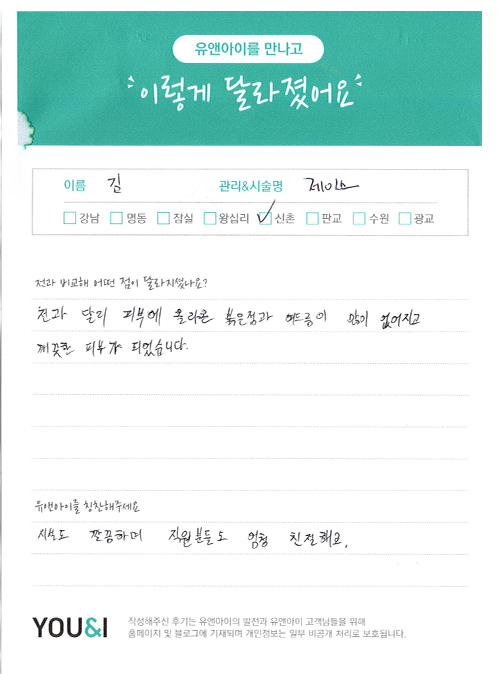 유앤아이를 만나고
이렇게 달라졌어요
이름 김 관리&시술명 제이슨
강남 명동 잠실 왕십리 신촌 판교 수원 광교
전과 비교해 어떤 점이 달라지셨나요?
전과 달리 피부에 올라온 붉은점과 여드름이 많이 없어지고
깨끗한 피부가 되었습니다.
유앤아이를 칭찬해주세요
시설도 깔끔하며 직원분들도 엄청 친절해요.
YOU&I
작성해주신 후기는 유앤아이의 발전과 유앤아이 고객님들을 위해
홈페이지 및 블로그에 기재되며 개인정보는 일부 비공개 처리로 보호됩니다.